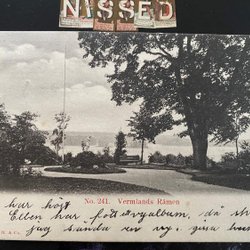 NISSED
No. 241. Vermlands Rämen
har hört
Ellen har fått vyalbum, då sk
jag sända en vy,
& Co.